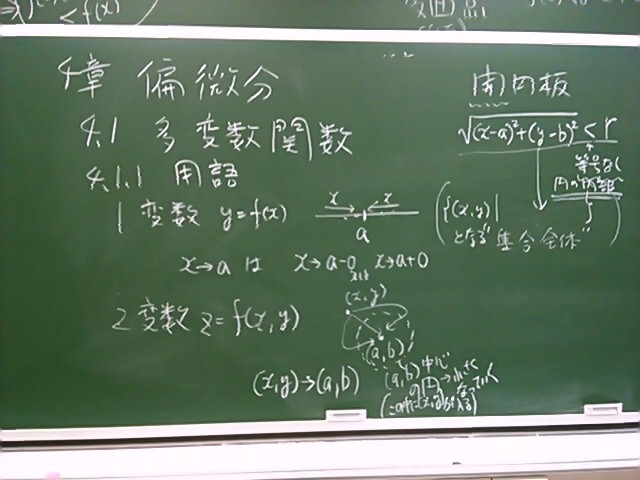 < f(x)
4章 偏微分
4.1 多変数関数
4.1.1 用語
1変数 y=f(x)
x x
a
x→a は x→a-0 または x→a+0
2変数 z=f(x,y)
(x,y)
(a,b)
(x,y)→(a,b)
(a,b)中心
の円→小さく
なっていく
(この中に(x,y)が入る)
開円板
√(x-a)²+(y-b)² < r
等号なし
円の内部
{(x,y)|
}
となる"集合全体"